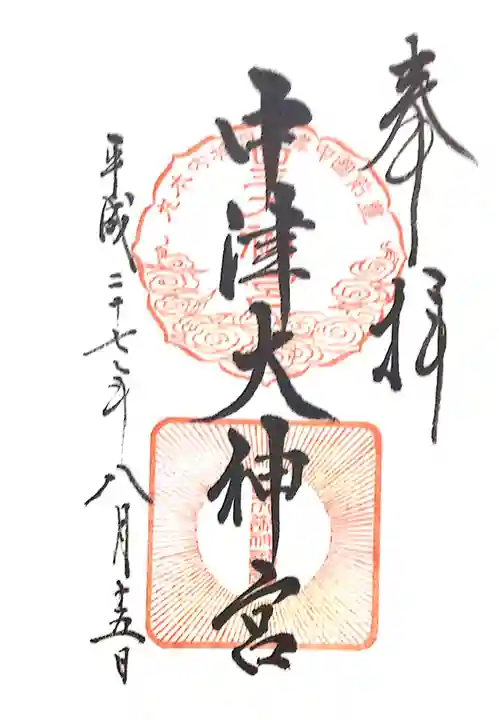 奉拝
中津大神宮
平成二十七年八月十五日